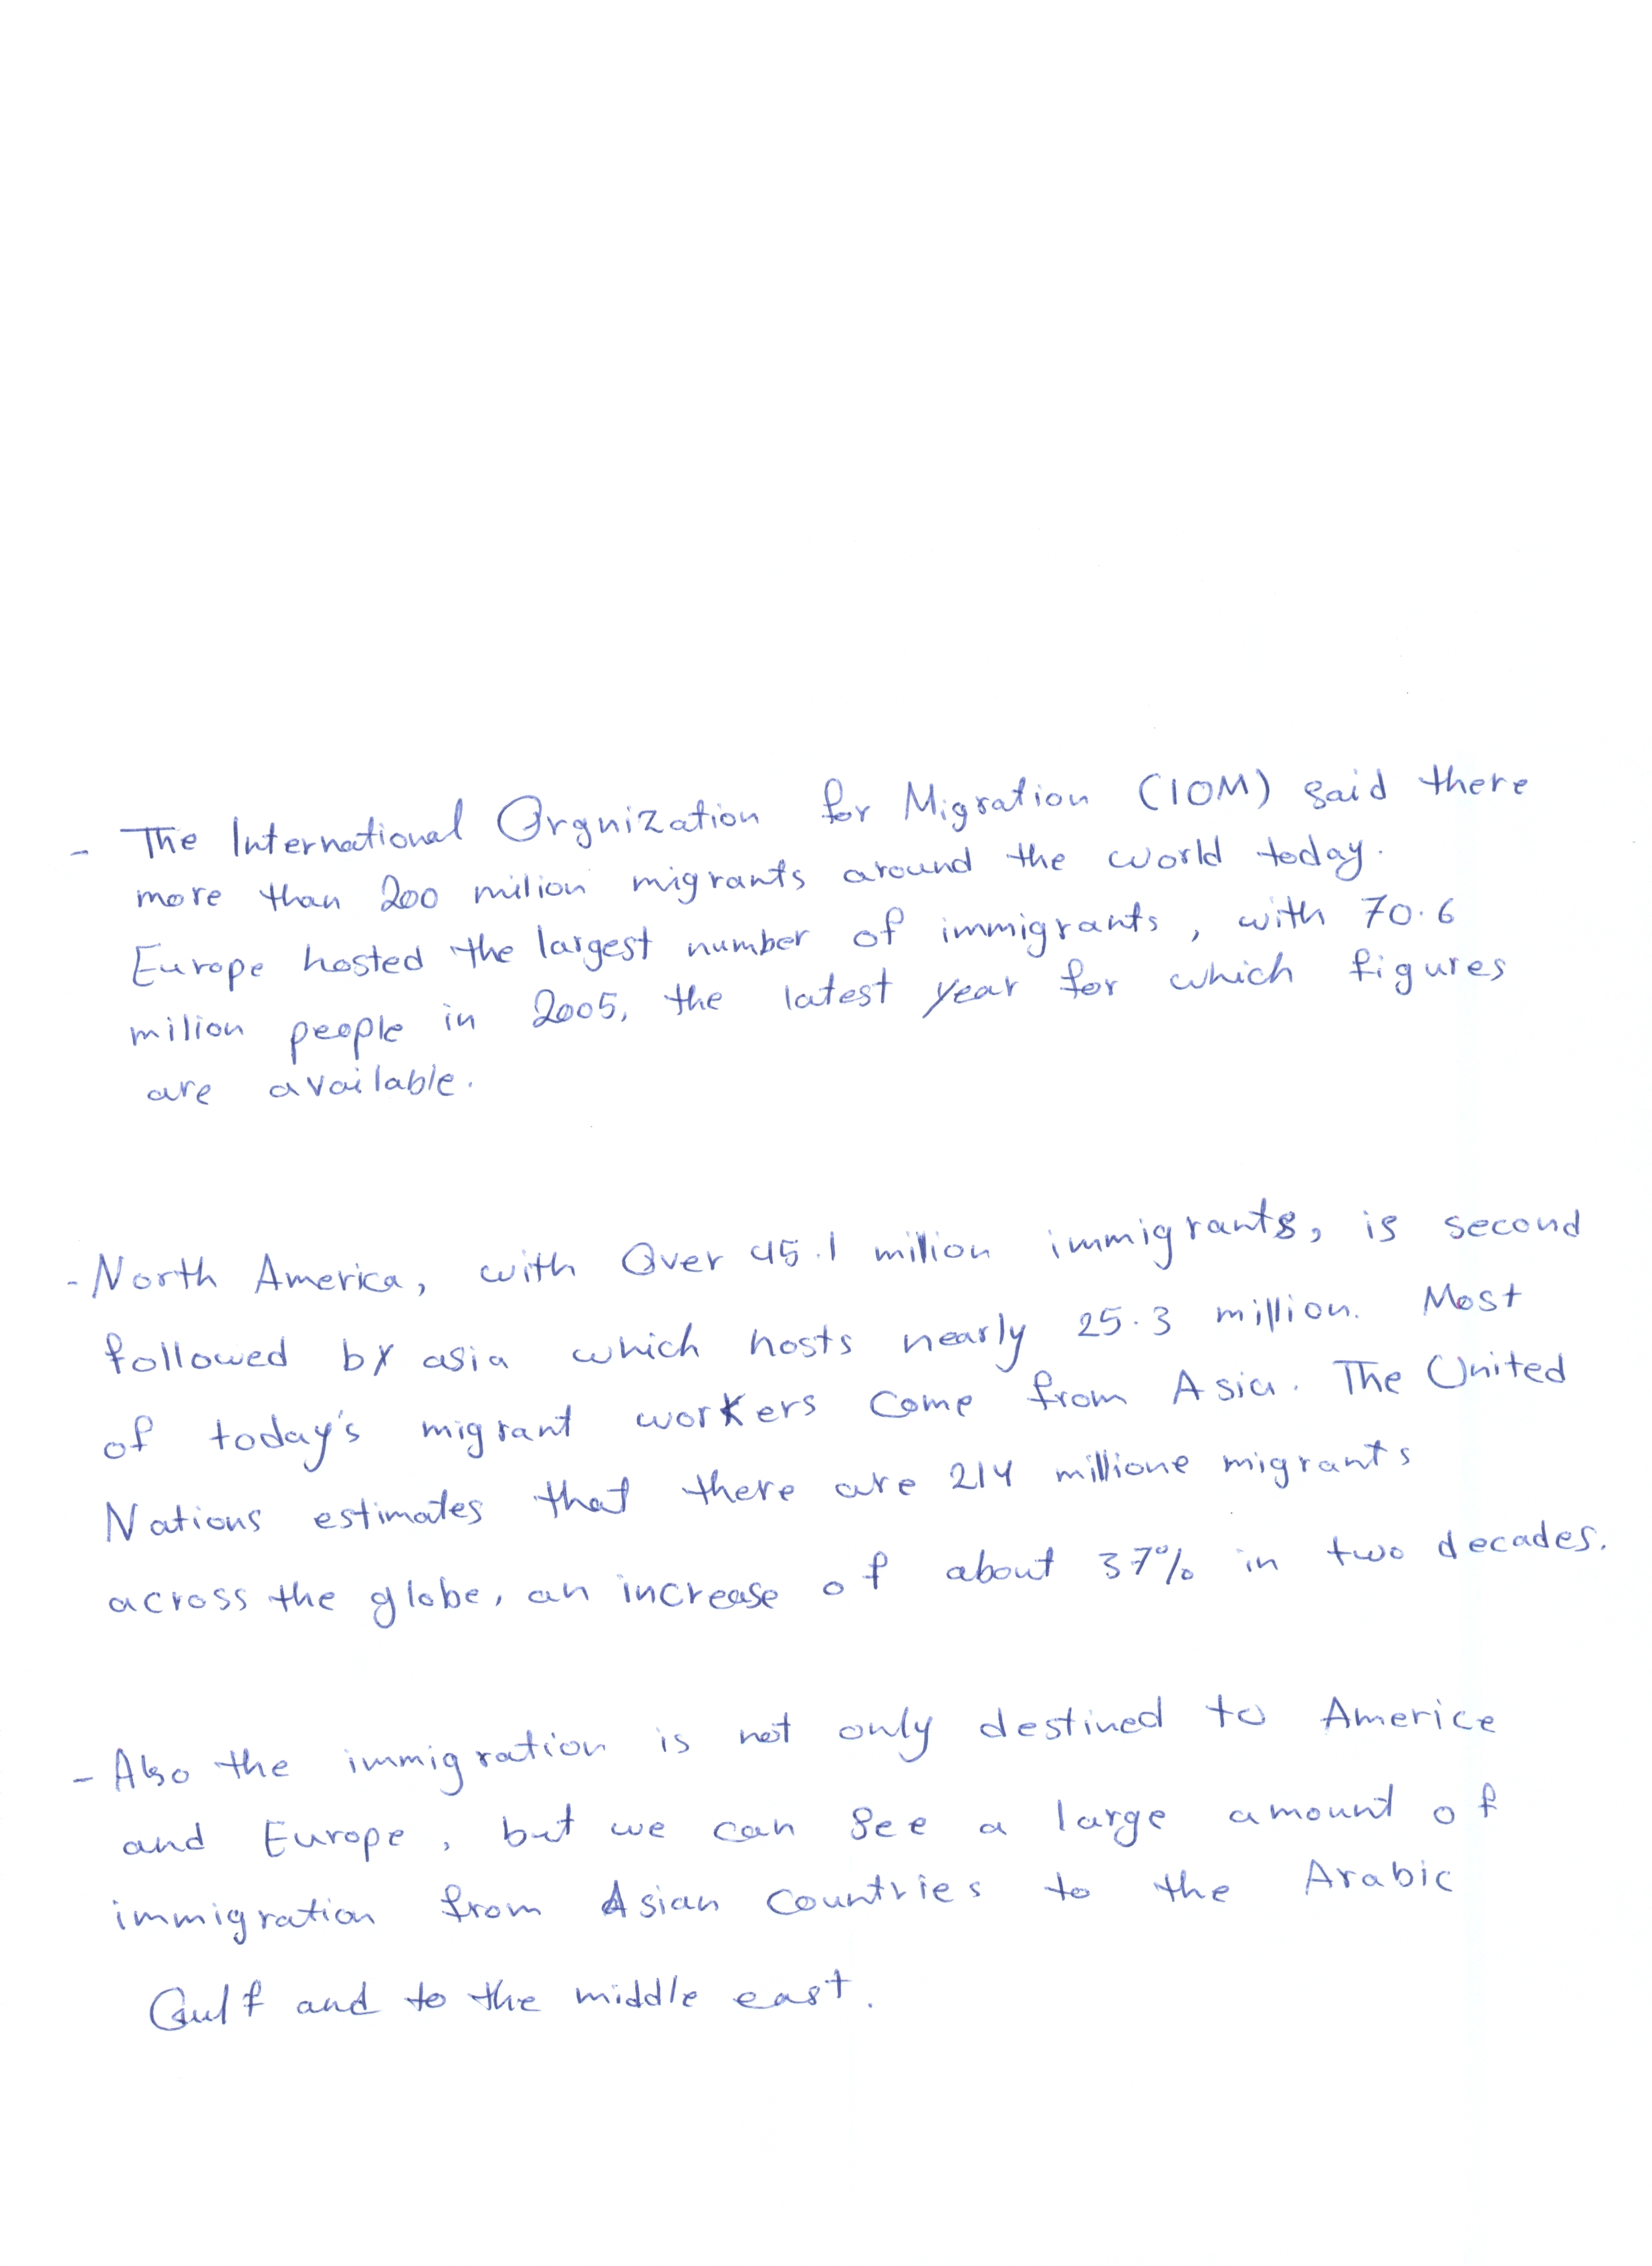 - The International Orgnization for Migration (IOM) said there
more than 200 milion migrants around the world today.
Europe hosted the largest number of immigrants, with 70.6
milion people in 2005, the latest year for which figures
are available.
- North America, with Over 45.1 milion immigrants, is second
followed by asia which hosts nearly 25.3 million. Most
of today's migrant workers come from Asia. The United
Nations estimates that there are 214 millione migrants
across the globe, an increase of about 37% in two decades.
- Also the immigration is not only destined to Americe
and Europe, but we can see a large amount of
immigration from Asian Countries to the Arabic
Gulf and to the middle east.